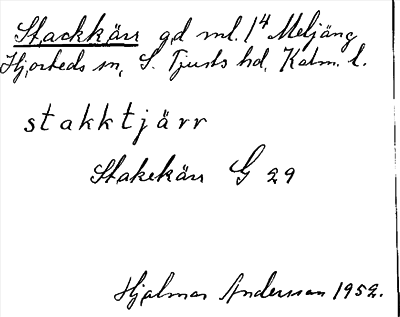 Stackkärr gd ml. 1⁴ Meljäng
Hjorteds sn, S. Tjusts hd, Kalm. l.
stakktjärr
Stakekärr G 29
Hjalmar Andersson 1952.